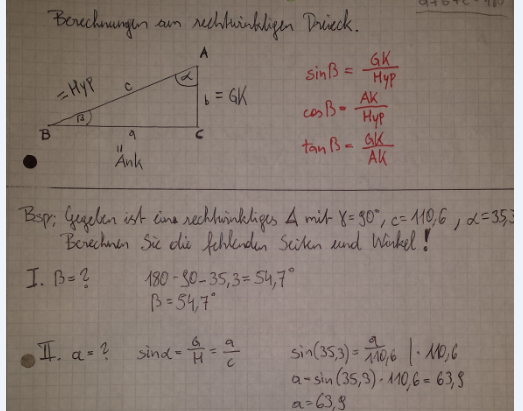 a+b+c=180
Berechnungen am rechtwinkligen Dreieck.
A
=Hyp
c
α
b = GK
β
B
a
C
Änk
sinβ = GK/Hyp
cosβ = AK/Hyp
tanβ = GK/AK
Bsp: Gegeben ist ein rechtwinkliges Δ mit γ=90°, c=110,6, α=35,3
Berechnen Sie die fehlenden Seiten und Winkel!
I. β=? 180-90-35,3=54,7°
β=54,7°
II. a=? sinα=G/H=a/c sin(35,3)=a/110,6 |·110,6
a=sin(35,3)·110,6=63,9
a=63,9